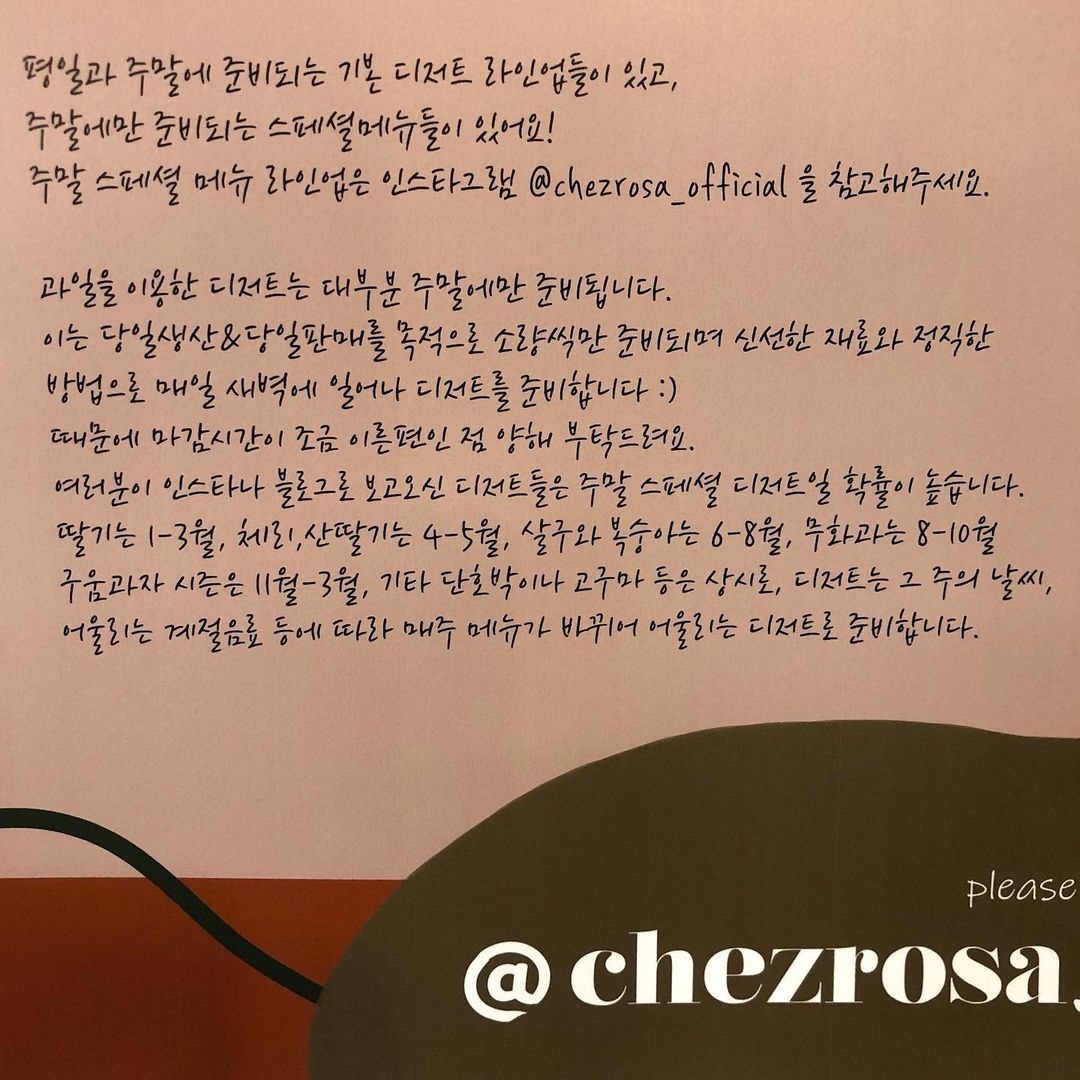 평일과 주말에 준비되는 기본 디저트 라인업들이 있고,
주말에만 준비되는 스페셜메뉴들이 있어요!
주말 스페셜 메뉴 라인업은 인스타그램 @chezrosa_official 을 참고해주세요.
과일을 이용한 디저트는 대부분 주말에만 준비됩니다.
이는 당일생산&당일판매를 목적으로 소량씩만 준비되며 신선한 재료와 정직한
방법으로 매일 새벽에 일어나 디저트를 준비합니다 :)
때문에 마감시간이 조금 이른편인 점 양해 부탁드려요.
여러분이 인스타나 블로그로 보고오신 디저트들은 주말 스페셜 디저트일 확률이 높습니다.
딸기는 1-3월, 체리,산딸기는 4-5월, 살구와 복숭아는 6-8월, 무화과는 8-10월
구움과자 시즌은 11월-3월, 기타 단호박이나 고구마 등은 상시로, 디저트는 그 주의 날씨,
어울리는 계절음료 등에 따라 매주 메뉴가 바뀌어 어울리는 디저트로 준비합니다.
please
@chezrosa_